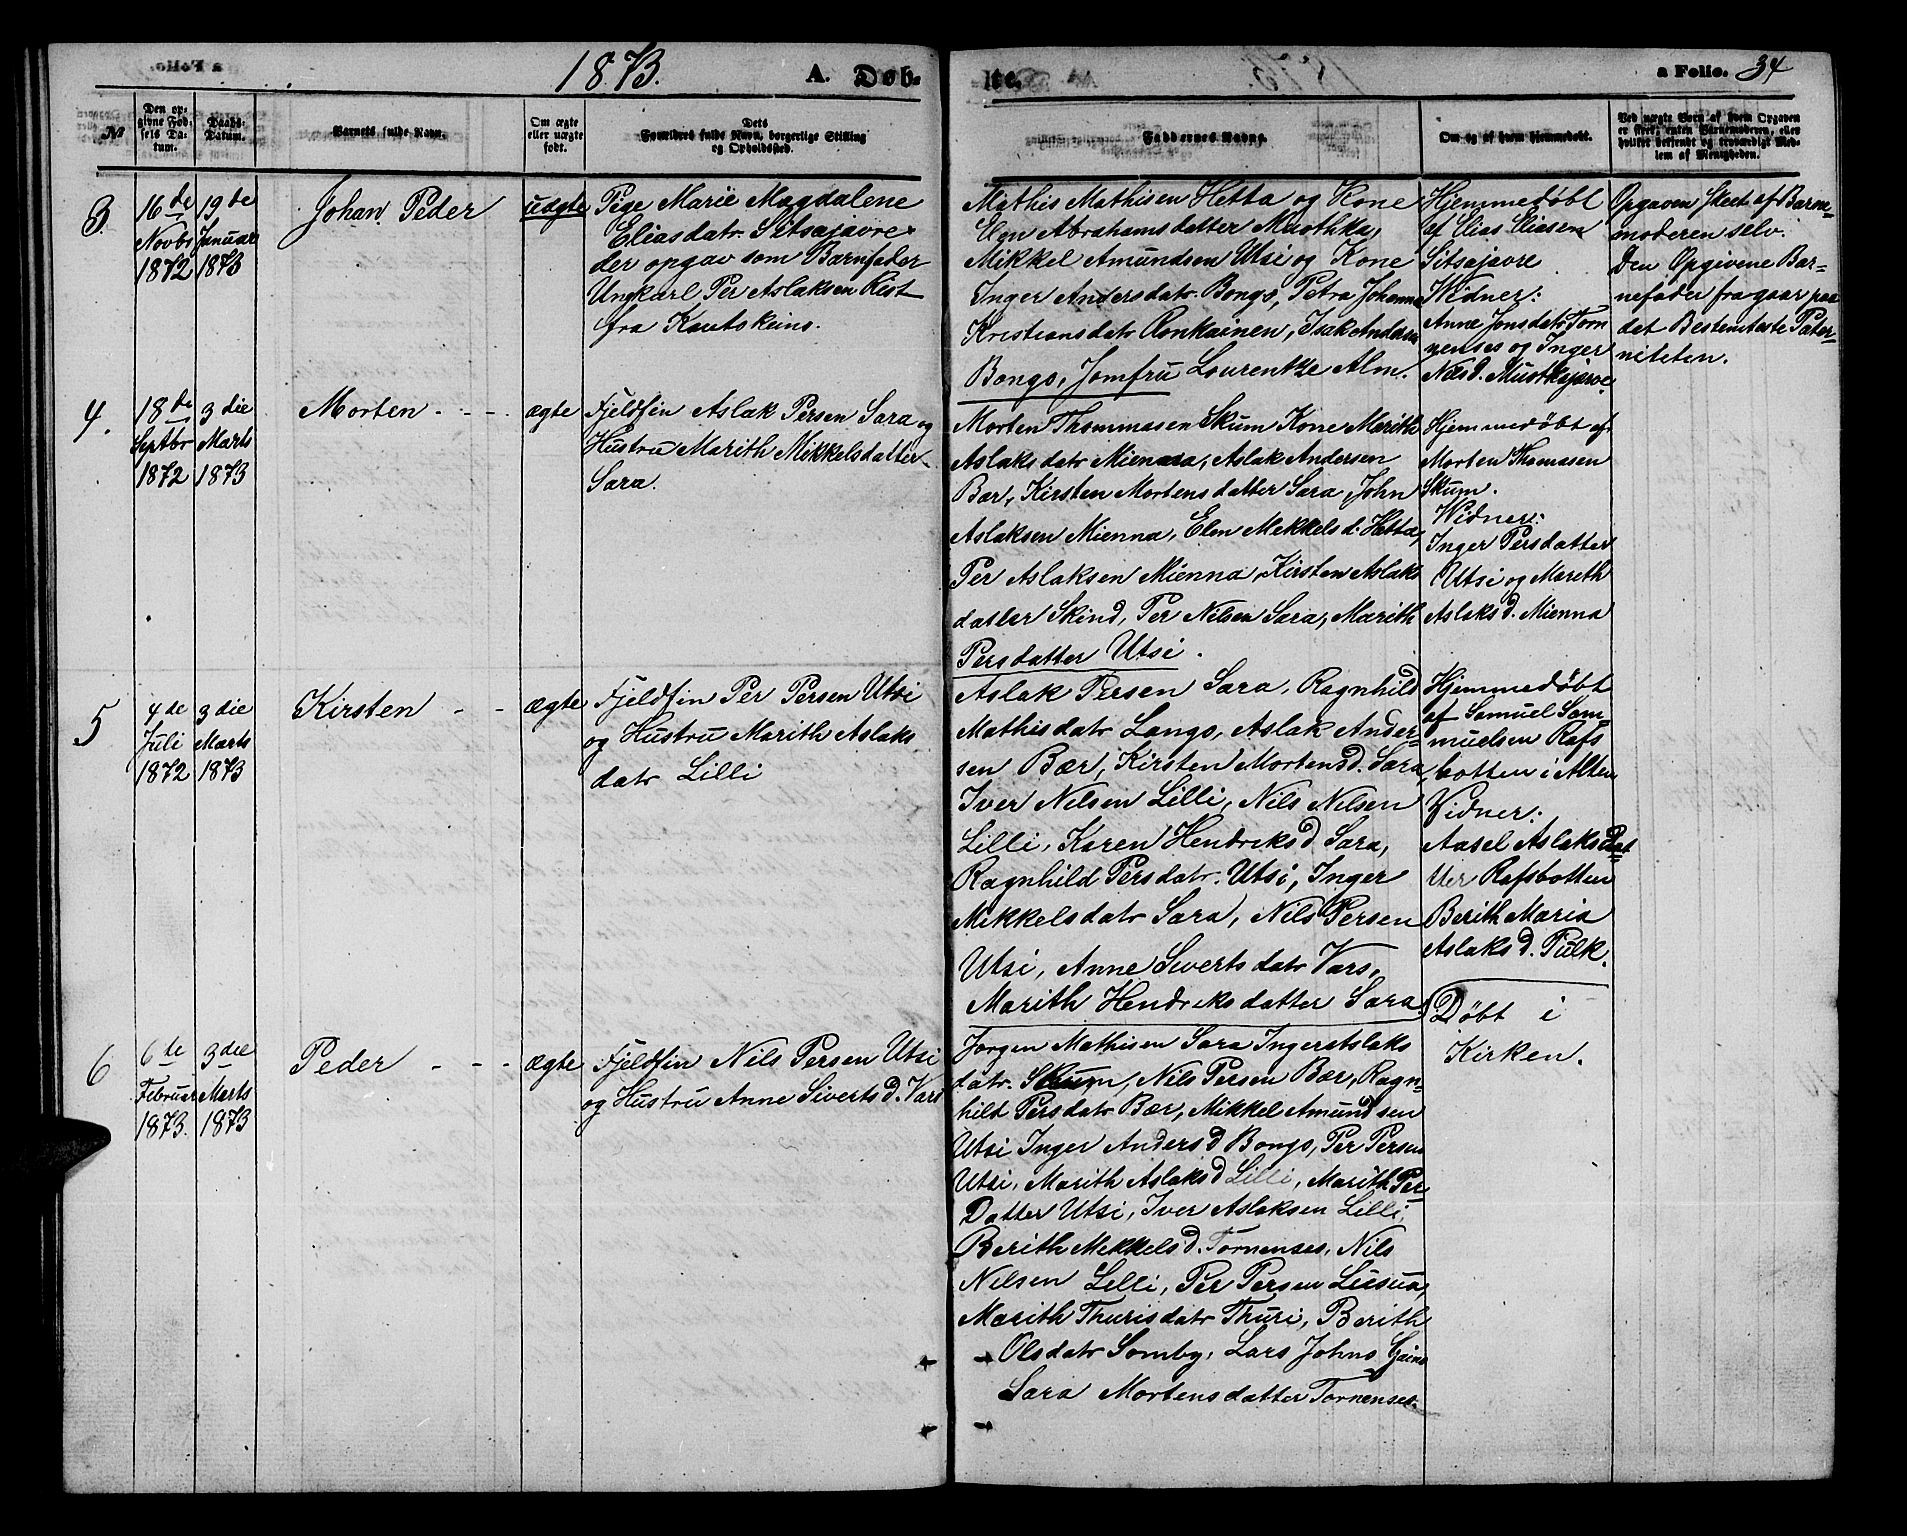 1873. A. Døb-
te. a Folio. 34
№
Den op-
givne Fød-
sels Da-
tum.
Daabs-
Datum.
Barnets fulde Navn.
Om ægte
eller uægte
født.
Dets
Forældres fulde Navn, borgerlige Stilling
og Opholdssted.
Faddernes Navne.
Om og af hvem hjemmedøbt.
Ved uægte Børn af hvem Opgaven
er skeet, enten Barnemoderen, eller
hvilket bekjendt og troværdigt Med-
lem af Menigheden.
3.
16de
Novbr
1872
19de
Januar
1873
Johan Peder
uægte
Pige Marie Magdalene
Eliasdatr. Sitsajavre
der opgav som Barnfader
Ungkarl Per Aslaksen Rist
fra Kautokeino.
Mathis Mathisen Hetta og Kone
Elen Abrahamsdatter Muothka,
Mikkel Amundsen Utsi og Kone
Inger Andersdatr. Bongo, Petra Johanna
Kristiansdatr Ronkainen, Isak Andersen
Bongo, Jomfru Lourentze Alm.
Hjemmedøbt
af Elias Eliasen
Sitsajavre
Widner:
Anne Jonsdatr Torn
nenses og Inger
Nilsd. Muotkajavre
Opgaven skeet af Barne-
moderen selv.
Den Opgivene Bar-
nefader fragaar paa
det Bestemteste Pater-
niteten.
4.
18de
Septbr
1872
3die
Marts
1873
Morten - - -
ægte
Fjeldfin Aslak Persen Sara og
Hustru Marith Mikkelsdatter
Sara.
Morten Thommasen Skum Kone Marith
Aslaksdatr Mienna, Aslak Andersen
Bær, Kirsten Mortensdatter Sara, John
Aslaksen Mienna, Elen Mikkelsd. Hetta,
Per Aslaksen Mienna, Kirsten Aslaks
datter Skind, Per Nilsen Sara, Marith
Persdatter Utsi.
Hjemmedøbt af
Morten Thomasen
Skum.
Widner:
Inger Persdatter
Utsi og Marith
Aslaksd. Mienna
5
4de
Juli
1872
3die
Marts
1873
Kirsten - -
ægte
Fjeldfin Per Persen Utsi
og Hustru Marith Aslaks
datr Lilli
Aslak Persen Sara, Ragnhild
Mathisdatr Lango, Aslak Ander-
sen Bær, Kirsten Mortensd. Sara,
Iver Nilsen Lilli, Nils Nilsen
Lilli, Karen Hendriksd Sara,
Ragnhild Persdatr. Utsi, Inger
Mikkelsdatr Sara, Nils Persen
Utsi, Anne Sivertsdatr Vars,
Marith Hendriksdatter Sara.
Hjemmedøbt
af Samuel Sam-
muelsen Rafs
botten i Alten
Vidner:
Aasel Aslaksdat
ter Rafsbotten
Berith Maria
Aslaksd. Pulk.
6
6de
Februar
1873.
3die
Marts
1873
Peder - - -
ægte
Fjeldfin Nils Persen Utsi
og Hustru Anne Sivertsd. Vars
Jørgen Mathisen Sara Inger Aslaks
datr. Skum, Nils Persen Bær, Ragn-
hild Persdatr Bær, Mikkel Amundsen
Utsi Inger Andersd Bongo, Per Persen
Utsi, Marith Aslaksd Lilli, Marith Per
Datter Utsi, Iver Aslaksen Lilli,
Berith Mikkelsd. Tornenses, Nils
Nilsen Lilli, Per Persen
Marith Thurisdatr Thuri, Berith
Olsdatr Somby, Lars Johns Gaino
Sara Mortensdatter Tornenses.
Døbt i
Kirken.